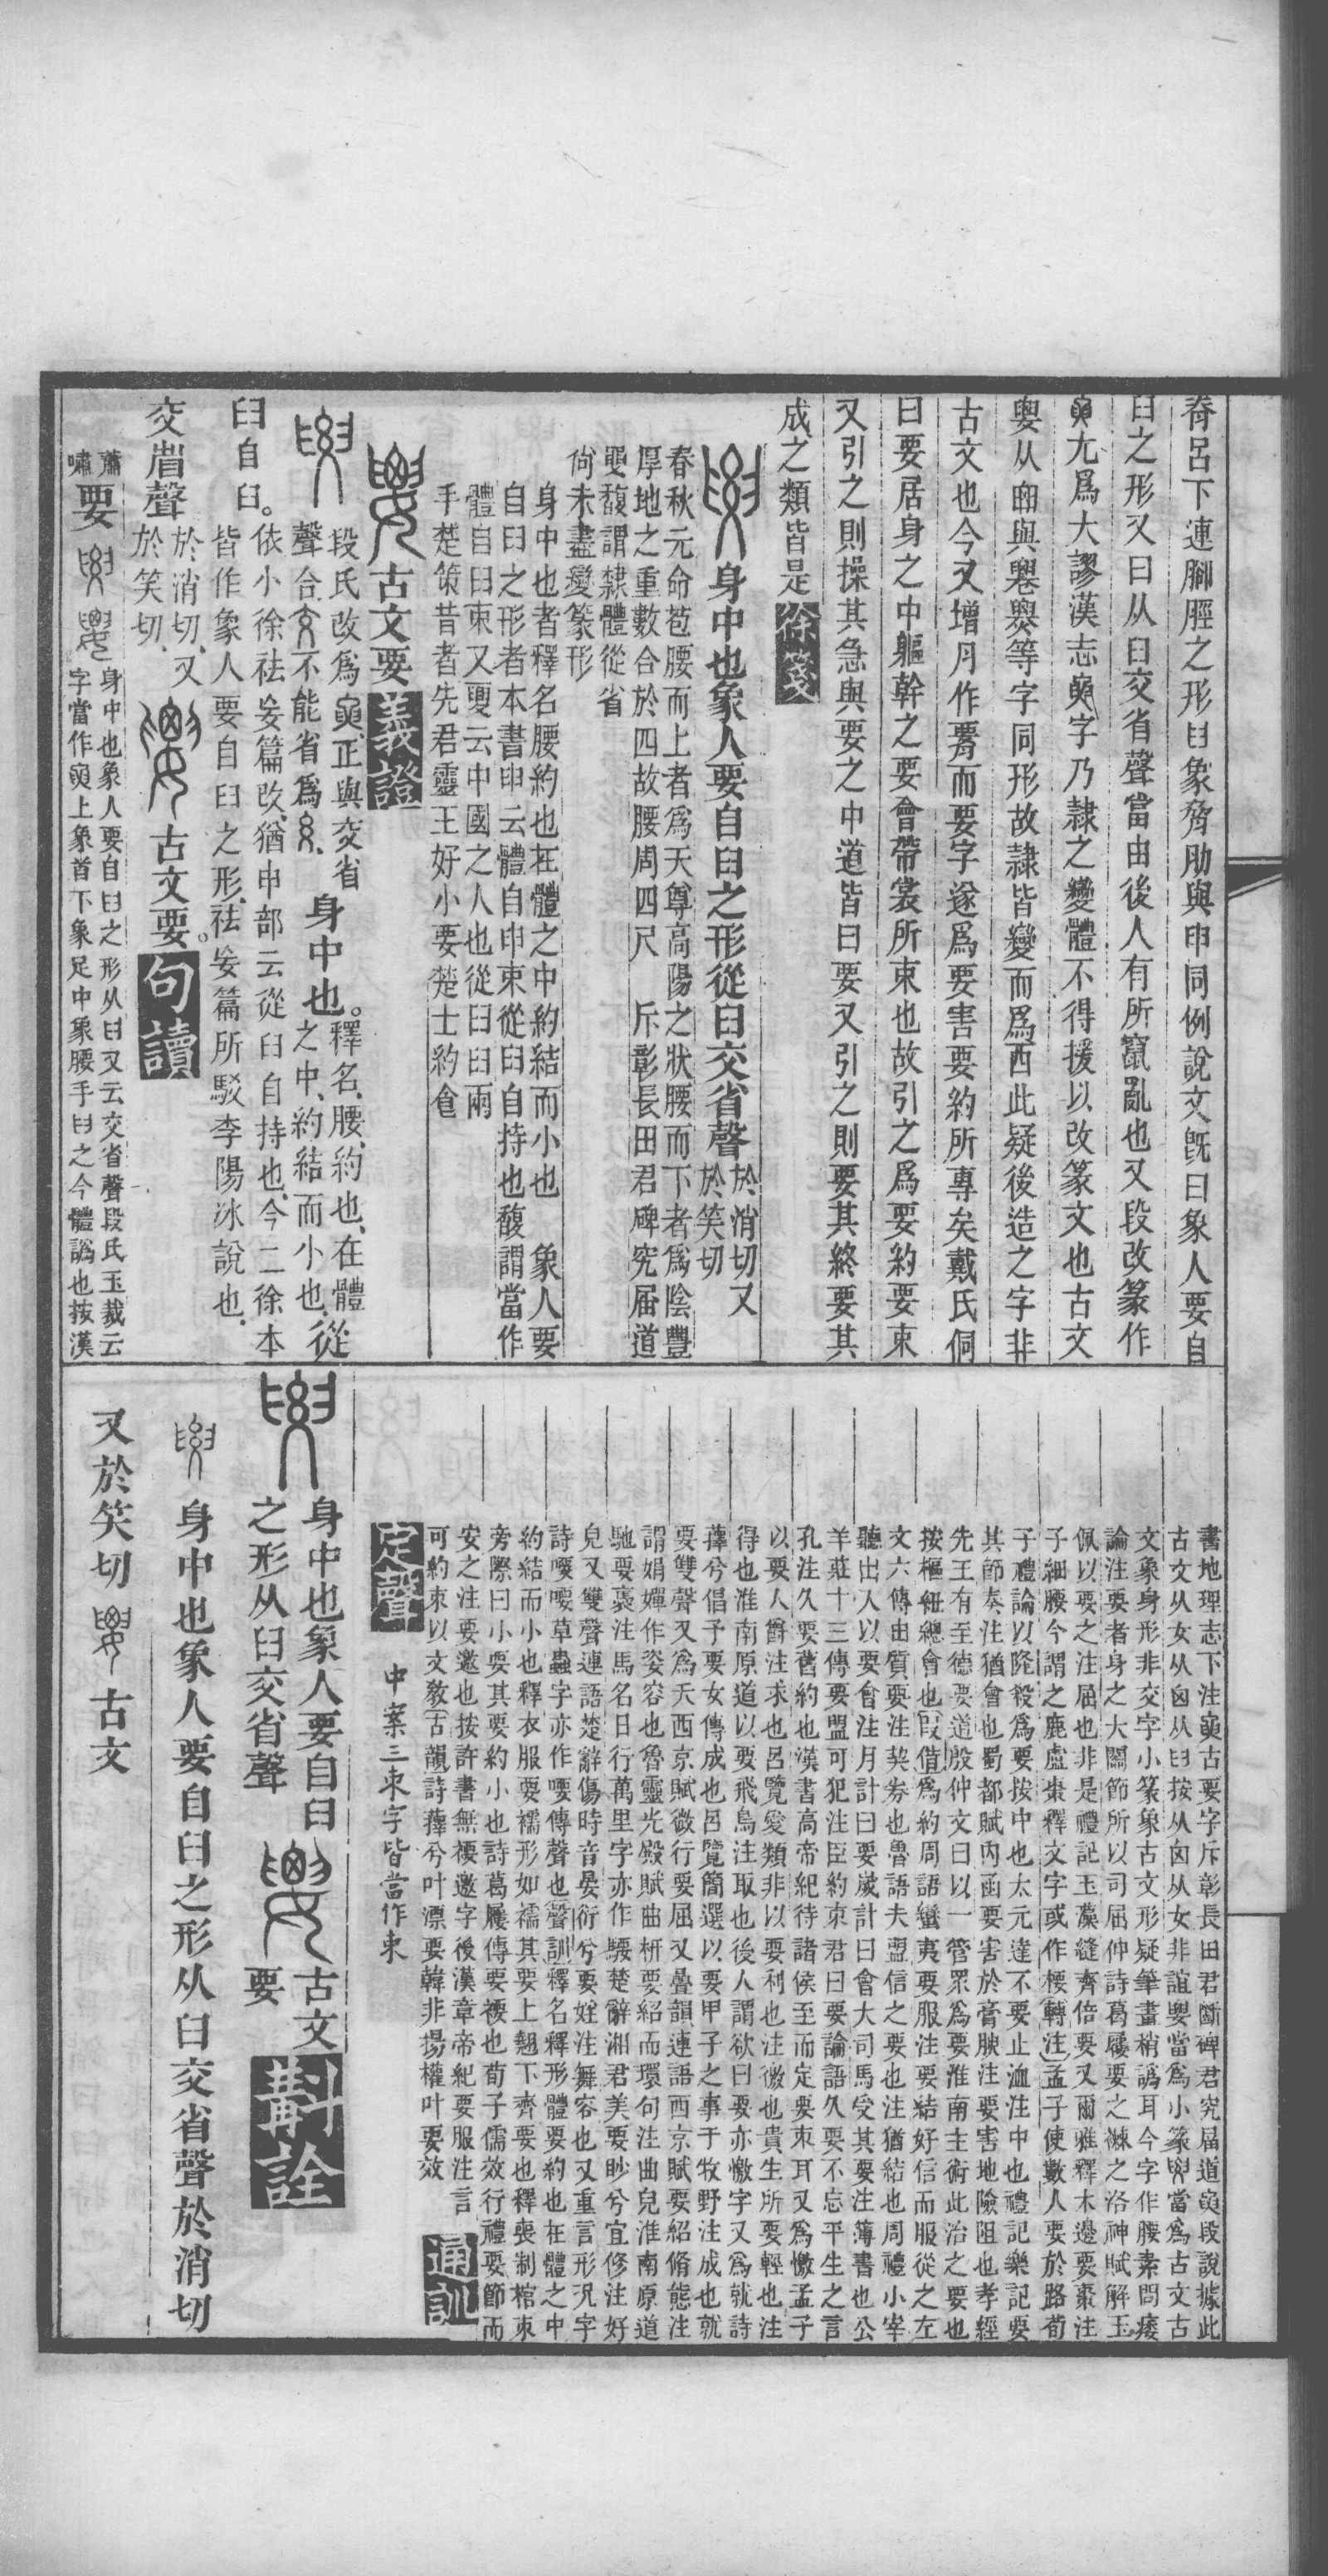 脊呂下連腳脛之形𦥑象脅肋與申同例說文既曰象人要自
𦥑之形又曰从𦥑交省聲當由後人有所竄亂也又段改篆作
尤爲大謬漢志字乃隸之變體不得援以改篆文也古文
从與等字同形故隸皆變而爲西此疑後造之字非
古文也今又增月作䙅而要字遂爲要害要約所專矣戴氏侗
曰要居身之中軀幹之要會帶裳所束也故引之爲要約要束
又引之則操其急與要之中道皆曰要又引之則要其終要其
成之類皆是徐箋
身中也象人要自𦥑之形從𦥑交省聲於消切又
於笑切
春秋元命苞腰而上者爲天尊高陽之狀腰而下者爲陰豐
厚地之重數合於四故腰周四尺 斥彰長田君碑究屆道
馥謂隸體從省
尙未盡變篆形
身中也者釋名腰約也在體之中約結而小也 象人要
自𦥑之形者本書申云體自申束從𦥑自持也馥謂當作
體自𦥑束又云中國之人也從𦥑𦥑兩
手楚策昔者先君靈王好小要楚士約食
古文要義證
段氏改爲正與交省
聲合不能省爲 身中也。釋名、腰、約也、在體
之中、約結而小也、從
𦥑自𦥑。依小徐祛妄篇改、猶申部云從𦥑自持也、今二徐本
皆作象人要自𦥑之形、祛妄篇所駁李陽冰說也、
交省聲於消切、又
於笑切、 古文要。句讀
蕭
嘯 要 身中也象人要自𦥑之形从𦥑又云交省聲段氏玉裁云
字當作上象首下象足中象腰手𦥑之今體譌也按漢
書地理志下注古要字斥彰長田君斷碑君究屆道段說據此
古文从女从囟从𦥑按从囟从女非誼當爲小篆當爲古文古
文象身形非交字小篆象古文形疑筆畫稍譌耳今字作腰素問痿
論注要者身之大關節所以司屈伸詩葛屨要之之洛神賦解玉
佩以要之注屈也非是禮記玉藻縫齊倍要又爾雅釋木邊要棗注
子細腰今謂之鹿盧棗釋文字或作楆轉注孟子使數人要於路荀
子禮論以隆殺爲要按中也太元達不要止洫注中也禮記樂記要
其節奏注猶會也蜀都賦內函要害於膏腴注要害地險阻也孝經
先王有至德要道殷仲文曰以一管眾爲要淮南主術此治之要也
按樞紐總會也叚借爲約周語蠻夷要服注要結好信而服從之左
文六傳由質要注契券也魯語夫盟信之要也注猶結也周禮小宰
聽出入以要會注月計曰要歲計曰會大司馬受其要注簿書也公
羊莊十三傳要盟可犯注臣約束君曰要論語久要不忘平生之言
孔注久要舊約也漢書高帝紀待諸侯至而定要束耳又爲憿孟子
以要人爵注求也呂覽愛類非以要利也注徼也貴生所要輕也注
得也淮南原道以要飛鳥注取也後人謂欲曰要亦憿字又爲就詩
蘀兮倡予要女傳成也呂覽簡選以要甲子之事于牧野注成也就
要雙聲又爲夭西京賦微行要屈又疊韻連語西京賦要紹脩態注
謂娟嬋作姿容也魯靈光殿賦曲枅要紹而環句注曲皃淮南原道
馳要褭注馬名日行萬里字亦作騕楚辭湘君美要眇兮宜修注好
皃又雙聲連語楚辭傷時音晏衍兮要婬注舞容也又重言形況字
詩喓喓草蟲字亦作喓傳聲也聲訓釋名釋形體要約也在體之中
約結而小也釋衣服要襦形如襦其要上翹下齊要也釋喪制棺束
旁際曰小要其要約小也詩葛屨傳要褾也荀子儒效行禮要節而
安之注要邀也按許書無邀字後漢章帝紀要服注言
可約束以文敎古韻詩蘀兮叶漂要韓非揚權叶要效 通訓
定聲 中案三束字皆當作朿
身中也象人要自𦥑
之形从𦥑交省聲 古文
要 斠詮
身中也象人要自𦥑之形从𦥑交省聲於消切
又於笑切 古文